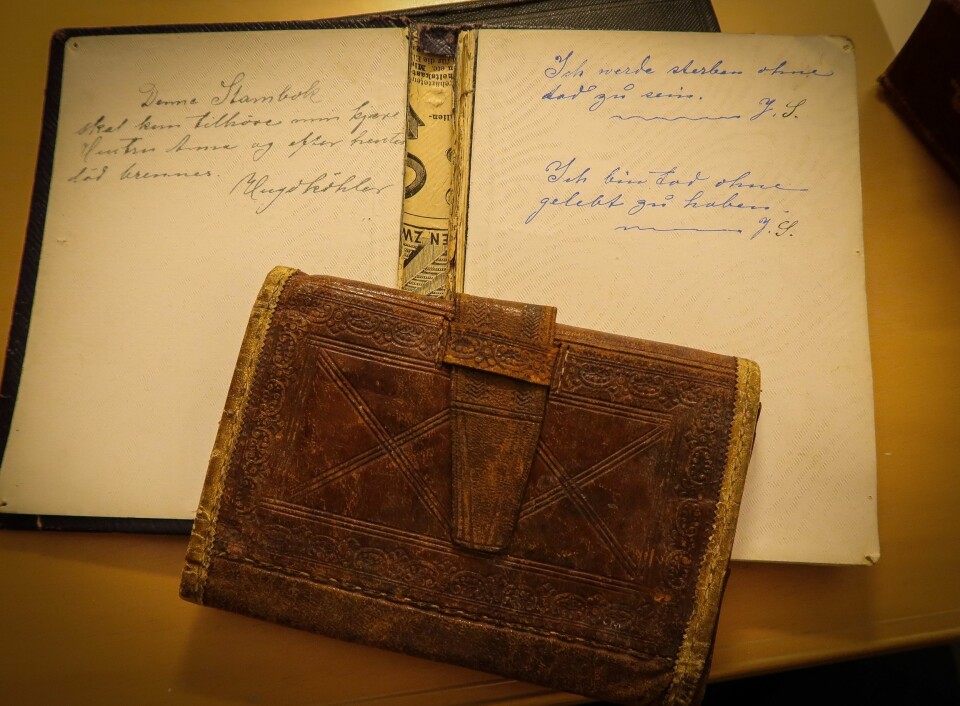 Denne Stambok
skal kun tilhöre min kjære
Hustru Anna og efter hendes
död brennes.
Hugo Köhler
EN ZW
Ich werde sterben ohne
tod zu sein.
J. S.
Ich bin tod ohne
gelebt zu haben.
J. S.